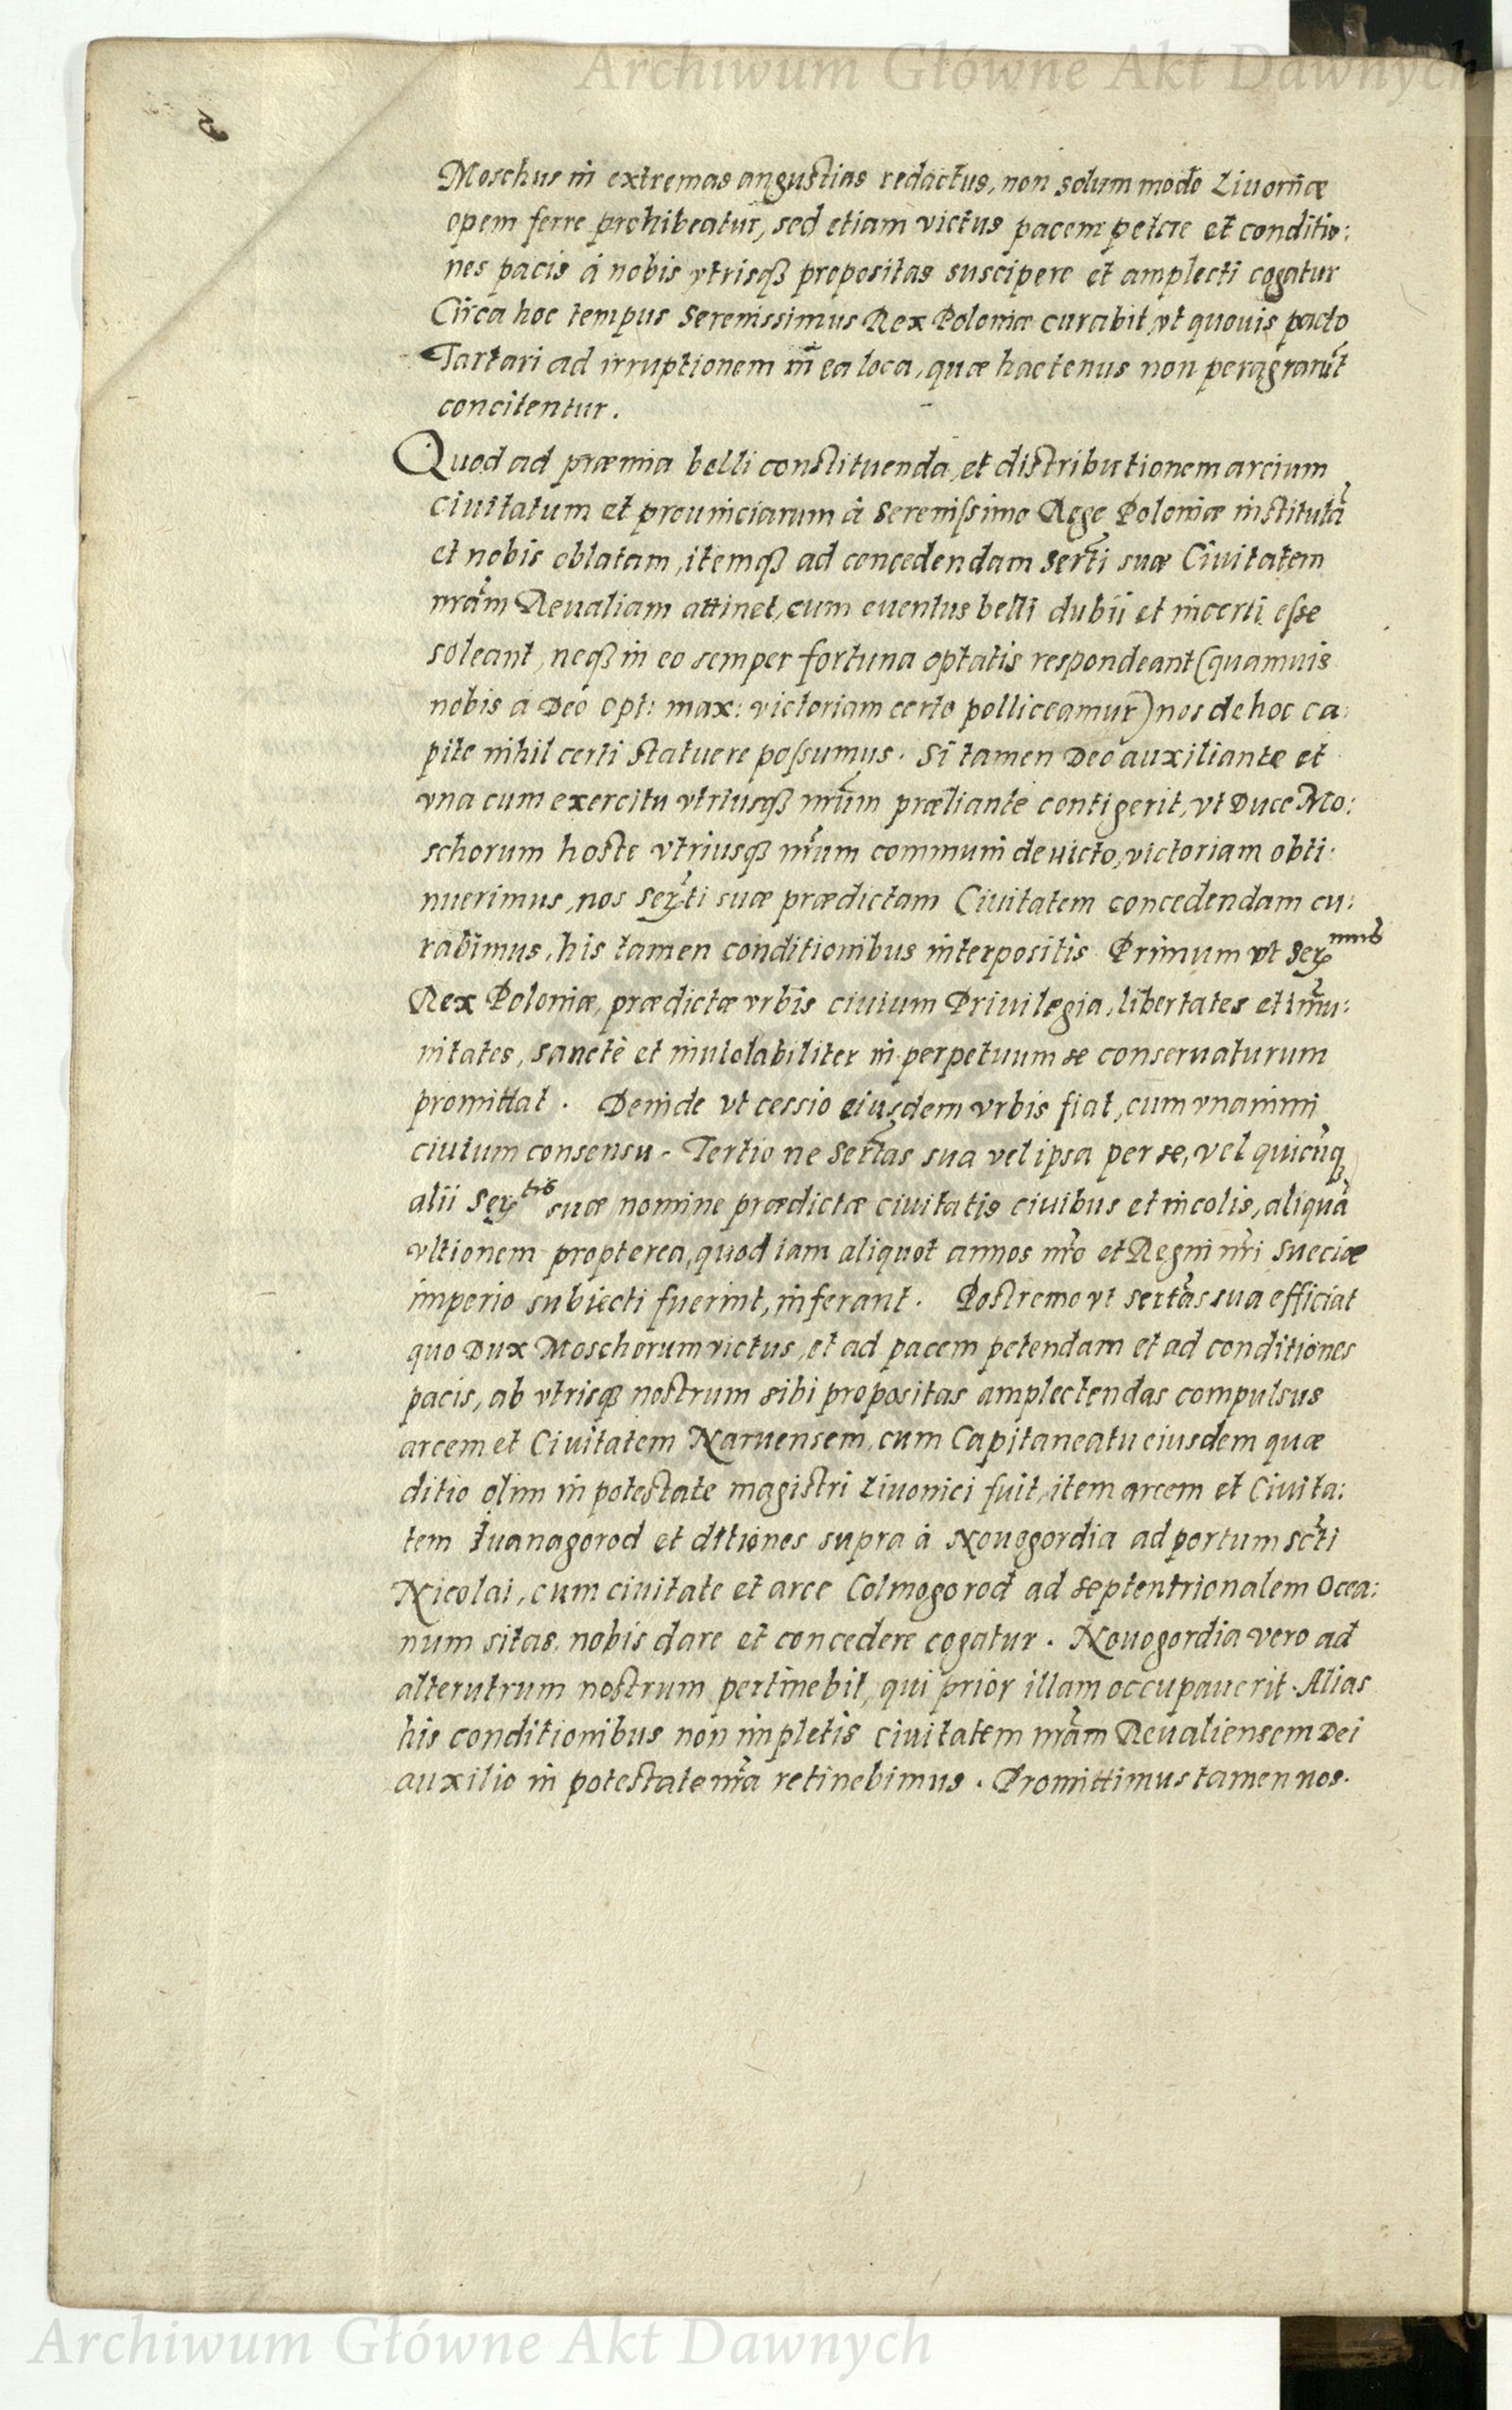 Archiwum Główne Akt Dawnych
Moschus in extremas angustias redactus, non solum modo Liuoniæ
opem ferre prohibeatur, sed etiam victus pacem petere et conditio:
nes pacis à nobis vtrisqꝫ propositas suscipere et amplecti cogatur
Circa hoc tempus Serenissimus Rex Poloniæ curabit, vt quouis pacto
Tartari ad irruptionem in ea loca, quæ hactenus non peragrarũt
concitentur.
Quod ad præmia belli constituenda, et distributionem arcium
ciuitatum et prouinciarum à Serenissimo Rege Poloniæ institutã
et nobis oblatam, itemqꝫ ad concedendam Serti suæ Ciuitatem
nram̃ Reualiam attinet, cum euentus belli dubii et incerti esse
soleant, neqꝫ in eo semper fortuna optatis respondeant (quamuis
nobis a Deo Opt: max: victoriam certo polliceamur) nos de hoc ca:
pite nihil certi statuere possumus. Si tamen Deo auxiliante et
vna cum exercitu vtriusqꝫ nrũm præliante contigerit, vt Duce Mo:
schorum hoste vtriusqꝫ nrũm communi deuicto, victoriam obti:
nuerimus, nos Serti suæ prædictam Ciuitatem concedendam cu:
rabimus, his tamen conditionibus interpositis Primum vt Sermus
Rex Poloniæ, prædictæ vrbis ciuium Priuilegia, libertates et im̃u:
nitates, sanctè et inuiolabiliter in perpetuum se conseruaturum
promittat. Deinde vt cessio eiusdem vrbis fiat, cum vnanimi
ciuium consensu. Tertio ne Sertas sua vel ipsa per se, vel quicũqꝫ
alii Sertis suæ nomine prædictæ ciuitatis ciuibus et incolis, aliquã
vltionem propterea, quod iam aliquot annos nr̃o et Regni nr̃i Sueciæ
imperio subiecti fuerint, inferant. Postremo vt Sertas sua efficiat
quo Dux Moschorum victus, et ad pacem petendam et ad conditiones
pacis, ab vtrisqꝫ nostrum sibi propositas amplectendas compulsus
arcem et Ciuitatem Naruensem, cum Capitaneatu eiusdem quæ
ditio olim in potestate magistri Liuonici fuit, item arcem et Ciuita:
tem Iuanagorod et ditiones supra à Nouogordia ad portum Scti
Nicolai, cum ciuitate et arce Colmogorod ad septentrionalem Ocea:
num sitas, nobis dare et concedere cogatur. Nouogordia vero ad
alterutrum nostrum pertinebit, qui prior illam occupauerit. Alias
his conditionibus non impletis ciuitatem nrãm Reualiensem Dei
auxilio in potestate nr̃a retinebimus. Promittimus tamen nos.
Archiwum Główne Akt Dawnych